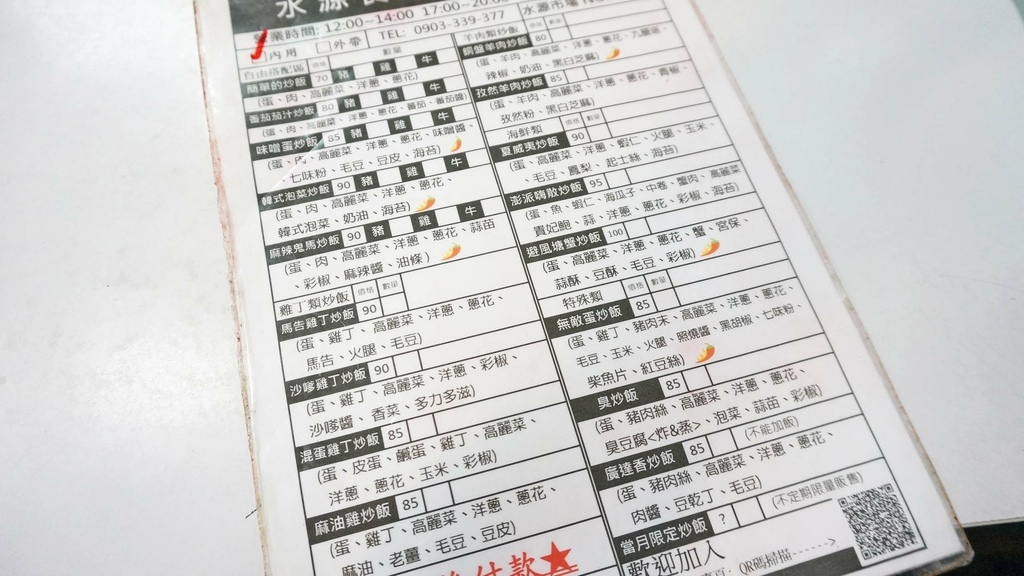 水源
營業時間: 12:00~14:00 17:00~20:
水源市場
內用 □外帶 TEL: 0903-339-377
自由搭配區 價格 數量
簡單的炒飯 70 豬 雞 牛
(蛋、肉、高麗菜、洋蔥、蔥花)
番茄茄汁炒飯 80 豬 雞 牛
(蛋、肉、高麗菜、洋蔥、蔥花、番茄、番茄醬)
味噌蛋炒飯 85 豬 雞 牛
(蛋、肉、高麗菜、洋蔥、蔥花、味噌醬、
七味粉、毛豆、豆皮、海苔)
韓式泡菜炒飯 90 豬 雞 牛
(蛋、肉、高麗菜、洋蔥、蔥花、
韓式泡菜、奶油、海苔)
麻辣鬼馬炒飯 90 豬 雞 牛
(蛋、肉、高麗菜、洋蔥、蔥花、蒜苗
、彩椒、麻辣醬、油條)
雞丁類炒飯 價格 數量
馬告雞丁炒飯 90
(蛋、雞丁、高麗菜、洋蔥、蔥花、
馬告、火腿、毛豆)
沙嗲雞丁炒飯 90
(蛋、雞丁、高麗菜、洋蔥、彩椒、
沙嗲醬、香菜、多力多滋)
混蛋雞丁炒飯 85
(蛋、皮蛋、鹹蛋、雞丁、高麗菜、
洋蔥、蔥花、玉米、彩椒)
麻油雞炒飯 85
(蛋、雞丁、高麗菜、洋蔥、蔥花、
麻油、老薑、毛豆、豆皮)
付款★
羊肉類炒飯 價格 數量
銅盤羊肉炒飯 80
(蛋、羊肉、高麗菜、洋蔥、蔥花、九層塔、
辣椒、奶油、黑白芝麻)
孜然羊肉炒飯 85
(蛋、羊肉、高麗菜、洋蔥、蔥花、青椒、
孜然粉、黑白芝麻)
海鮮類 價格 數量
夏威夷炒飯 90
(蛋、高麗菜、洋蔥、蝦仁、火腿、玉米、
、毛豆、鳳梨、起士絲、海苔)
澎派嗨散炒飯 95
(蛋、魚、蝦仁、海瓜子、中卷、蟹肉、高麗菜
貴妃鮑、蒜、洋蔥、蔥花、彩椒、海苔)
避風塘蟹炒飯 100
(蛋、高麗菜、洋蔥、蔥花、蟹、宮保、
蒜酥、豆酥、毛豆、彩椒)
特殊類 價格 數量
無敵蛋炒飯 85
(蛋、雞丁、豬肉末、高麗菜、洋蔥、蔥花、
毛豆、玉米、火腿、照燒醬、黑胡椒、七味粉、
柴魚片、紅豆絲)
臭炒飯 85
(蛋、豬肉絲、高麗菜、洋蔥、蔥花、
臭豆腐<炸&蒸>、泡菜、蒜苗、彩椒)
廣達香炒飯 85 (不能加飯)
(蛋、豬肉絲、高麗菜、洋蔥、蔥花、
肉醬、豆乾丁、毛豆)
當月限定炒飯 ? (不定期限量販售)
歡迎加入
QR碼掃描------>